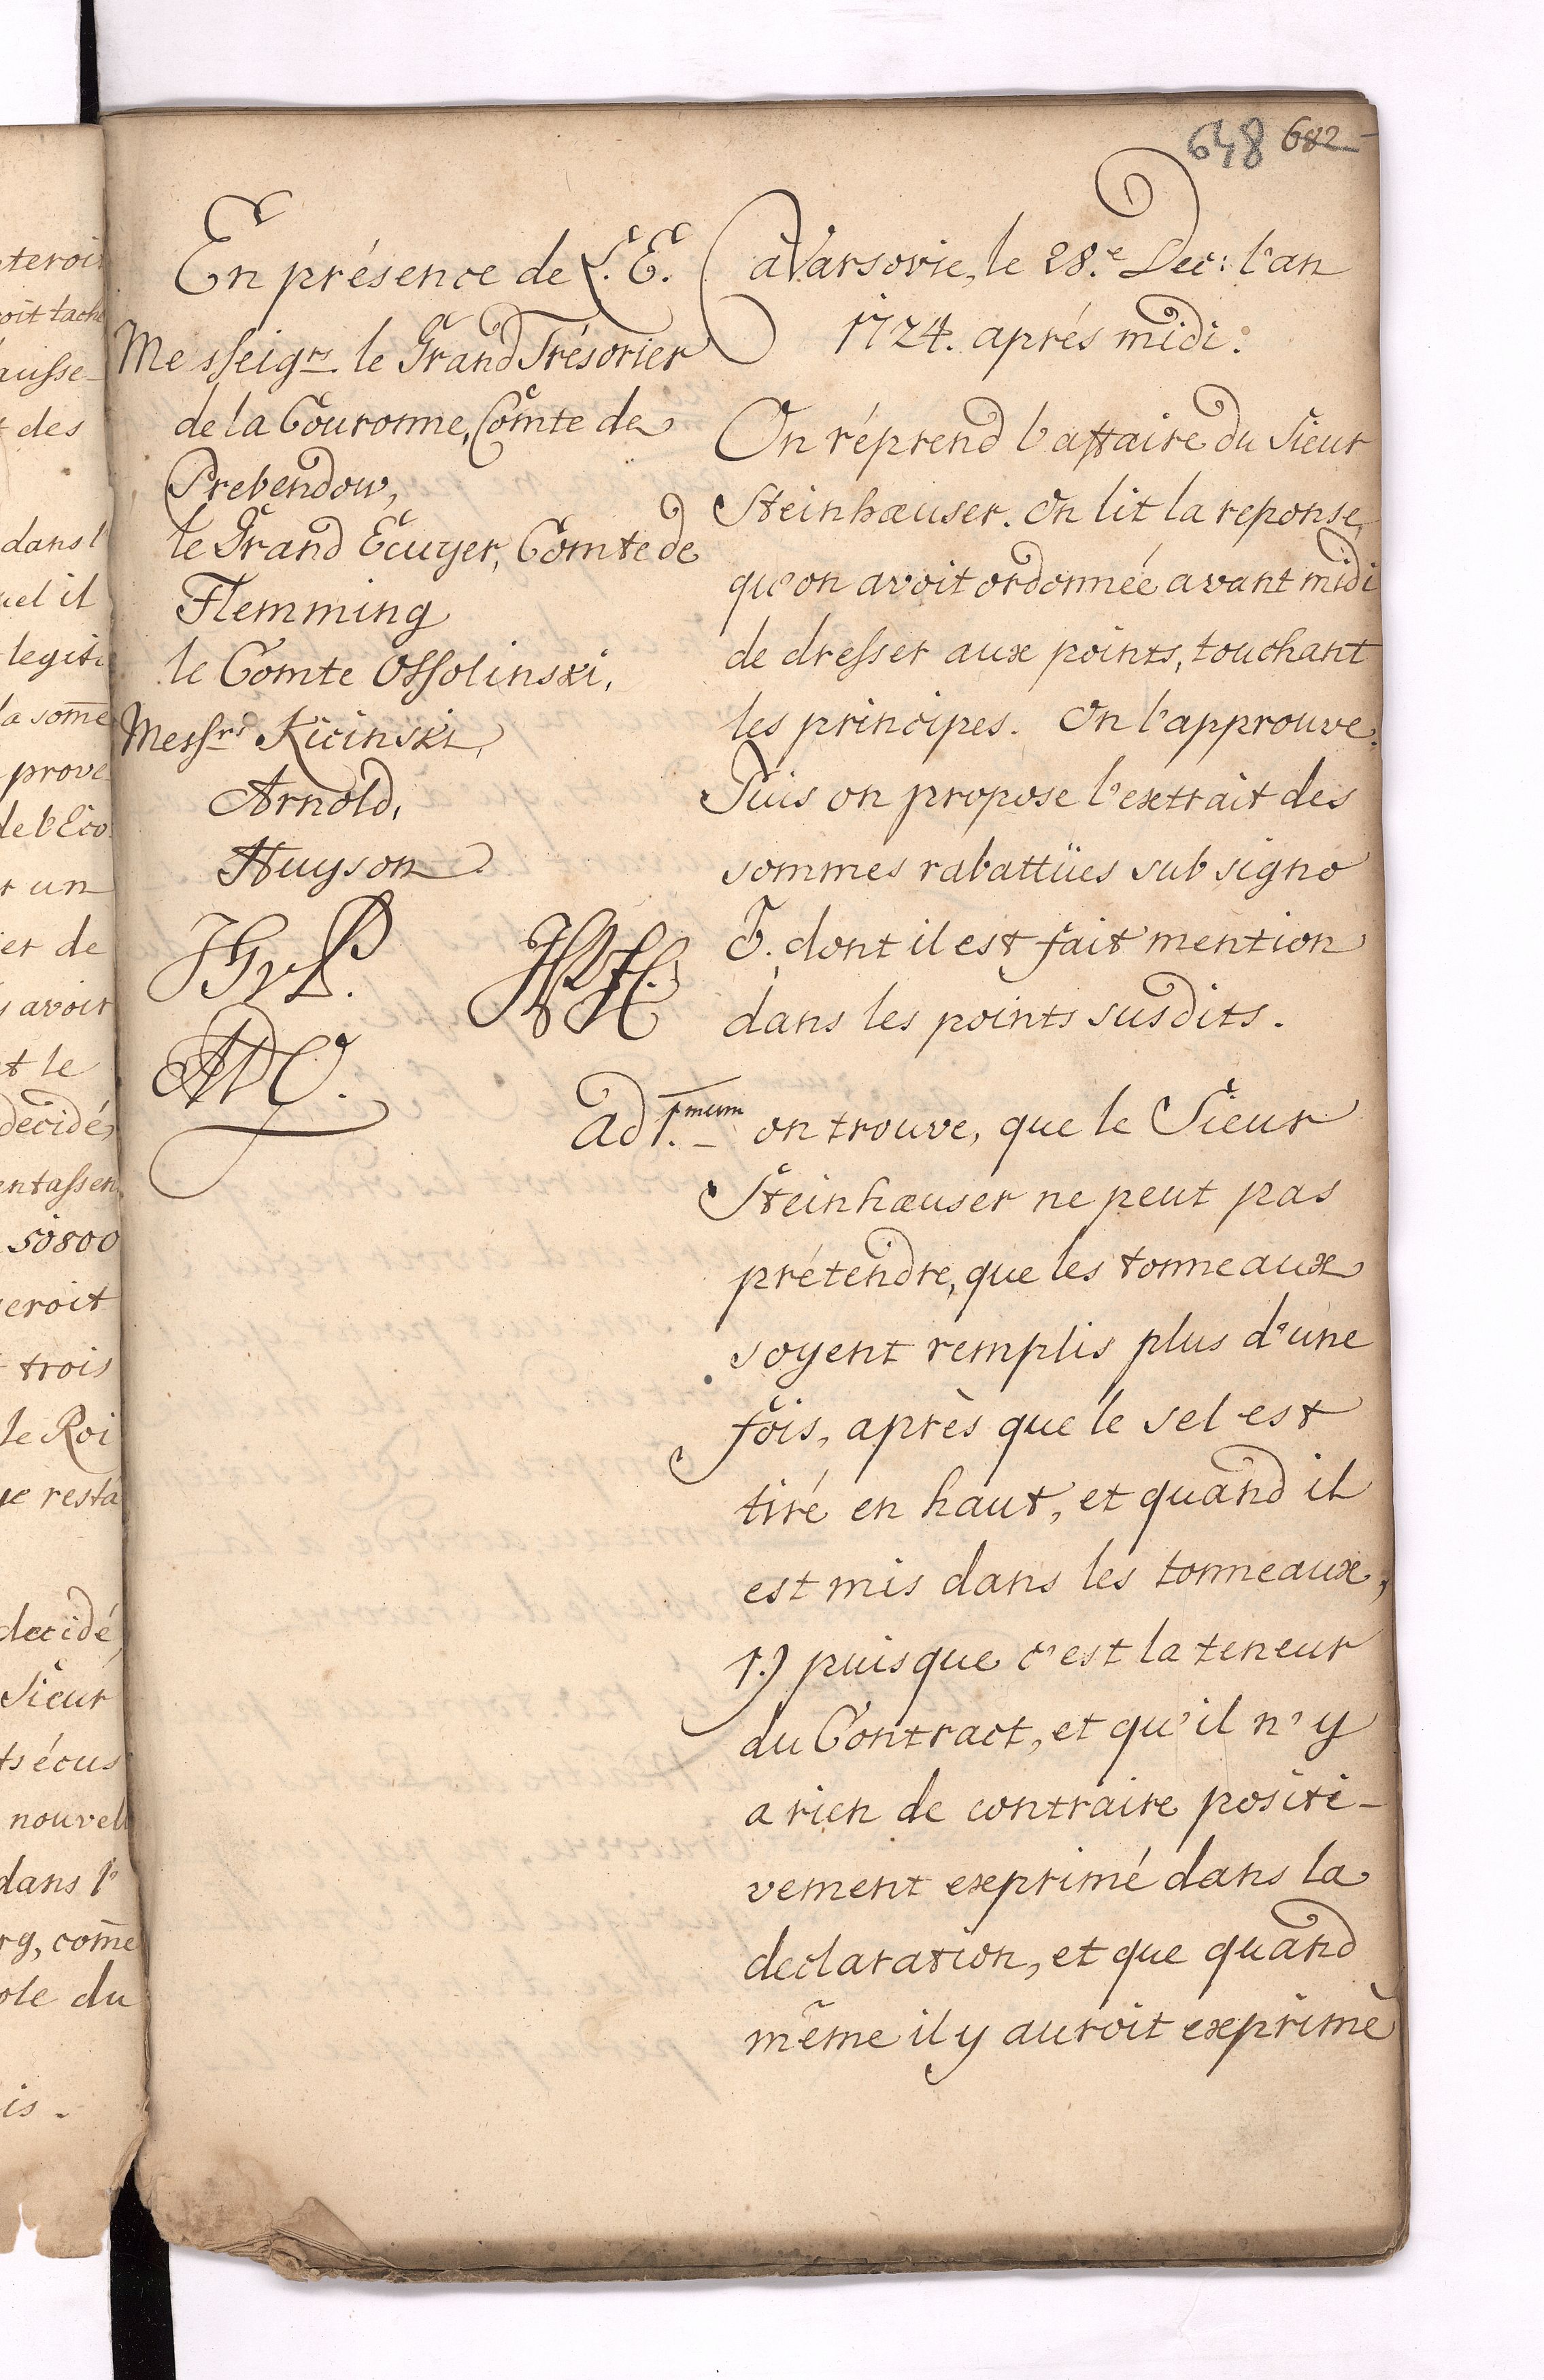 648 682
En présence de L. E.
Messeigrs. le Grand Trésorier
de la Couronne, Comte de
Prebendow,
le Grand Ecuyer, Comte de
Flemming
le Comte Ossolinski,
Messrs Kicinski,
Arnold,
Huyson
à Varsovie, le 28.e Dec: l'an
1724. aprés midi.
On réprend l'affaire du Sieur
Steinhæuser. On lit la reponse,
qu'on avoit ordonnée avant midi
de dresser aux points, touchant
les principes. On l'approuve.
Puis on propose l'extrait des
sommes rabattües sub signo
dont il est fait mention
dans les points susdits.
ad 1.mum on trouve, que le Sieur
Steinhæuser ne peut pas
prétendre, que les tonneaux
soyent remplis plus d'une
fois, après que le sel est
tiré en haut, et quand il
est mis dans les tonneaux,
1.) puisque c'est la teneur
du Contract, et qu'il n'y
a rien de contraire positi-
vement exprimé dans la
declaration, et que quand
même il y auroit exprimé
teroit
oit tache
ausse-
des
dans l'
uel il
legiti
la som̄e
prove
de l'Eco
un
er de
avoir
t le
decidé,
entassen
50800
eroit
trois
le Roi
resta
decidé,
Sieur
ts écus
nouvell
dans l'
rg, com̄e
ole du
is.